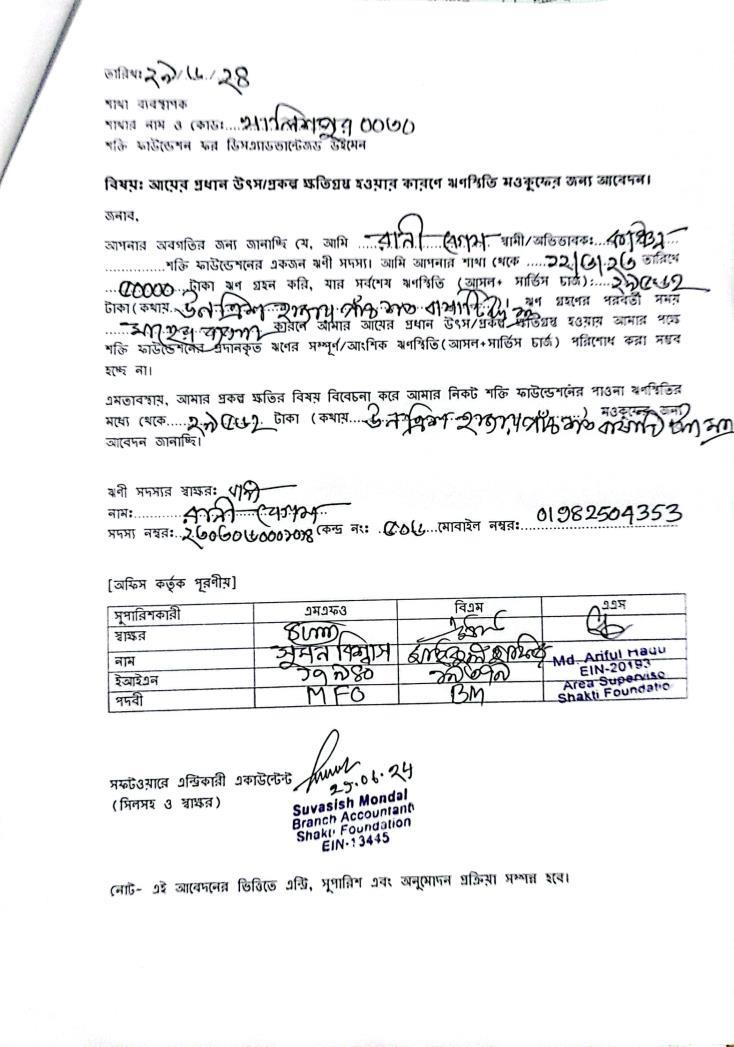 তারিখঃ ২৯/৬/২৪
শাখা ব্যবস্থাপক
শাখার নাম ও কোডঃ....খালিশপুর ০০৭০
শক্তি ফাউন্ডেশন ফর ডিসএ্যাডভান্টেজড উইমেন
বিষয়ঃ আয়ের প্রধান উৎস/প্রকল্প ক্ষতিগ্রস্থ হওয়ার কারণে ঋণস্থিতি মওকুফের জন্য আবেদন।
জনাব,
আপনার অবগতির জন্য জানাচ্ছি যে, আমি .....রানী বেগম স্বামী/অভিভাবকঃ...
..............শক্তি ফাউন্ডেশনের একজন ঋণী সদস্য। আমি আপনার শাখা থেকে .....২২/৩/২৩ তারিখে
....৫০০০০ টাকা ঋণ গ্রহন করি, যার সর্বশেষ ঋণস্থিতি (আসল+ সার্ভিস চার্জ):....২৯৫৮২
টাকা (কথায় ঊনত্রিশ হাজার পাঁচ শত বিরাশি ঋণ গ্রহণের পরবর্তী সময়
কারণে আমার আয়ের প্রধান উৎস/প্রকল্প ক্ষতিগ্রস্থ হওয়ায় আমার পক্ষে
শক্তি ফাউন্ডেশনের প্রদানকৃত ঋণের সম্পূর্ণ/আংশিক ঋণস্থিতি (আসল+সার্ভিস চার্জ) পরিশোধ করা সম্ভব
হচ্ছে না।
এমতাবস্থায়, আমার প্রকল্প ক্ষতির বিষয় বিবেচনা করে আমার নিকট শক্তি ফাউন্ডেশনের পাওনা ঋণস্থিতির
মধ্যে থেকে.....২৯৫৮২ টাকা (কথায় ...ঊনত্রিশ হাজার পাঁচ শত বিরাশি টাকা মাত্র) মওকুফের জন্য
আবেদন জানাচ্ছি।
ঋণী সদস্যর স্বাক্ষরঃ রানী
নামঃ........রানী বেগম
সদস্য নম্বরঃ.. কেন্দ্র নং: .৫০৬...মোবাইল নম্বরঃ....01982504353
[অফিস কর্তৃক পূরণীয়]
সুপারিশকারী এমএফও বিএম এএস
স্বাক্ষর
নাম সুমন বিশ্বাস Md. Ariful Haqu
ইআইএন ১৭৯৪০ EIN-20193
পদবী MFO BM Area Superviso
Shakti Foundatio
সফটওয়ারে এন্ট্রিকারী একাউন্টেন্ট
(সিলসহ ও স্বাক্ষর)
29.06.24
Suvasish Mondal
Branch Accountant
Shakti Foundation
EIN-13445
নোট- এই আবেদনের ভিত্তিতে এন্ট্রি, সুপারিশ এবং অনুমোদন প্রক্রিয়া সম্পন্ন হবে।